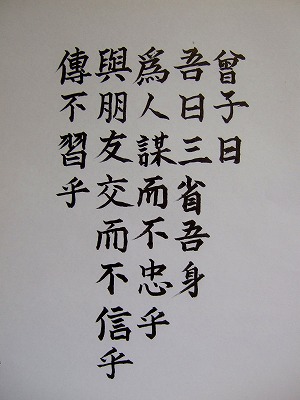 曾子曰
吾日三省吾身
爲人謀而不忠乎
與朋友交而不信乎
傳不習乎